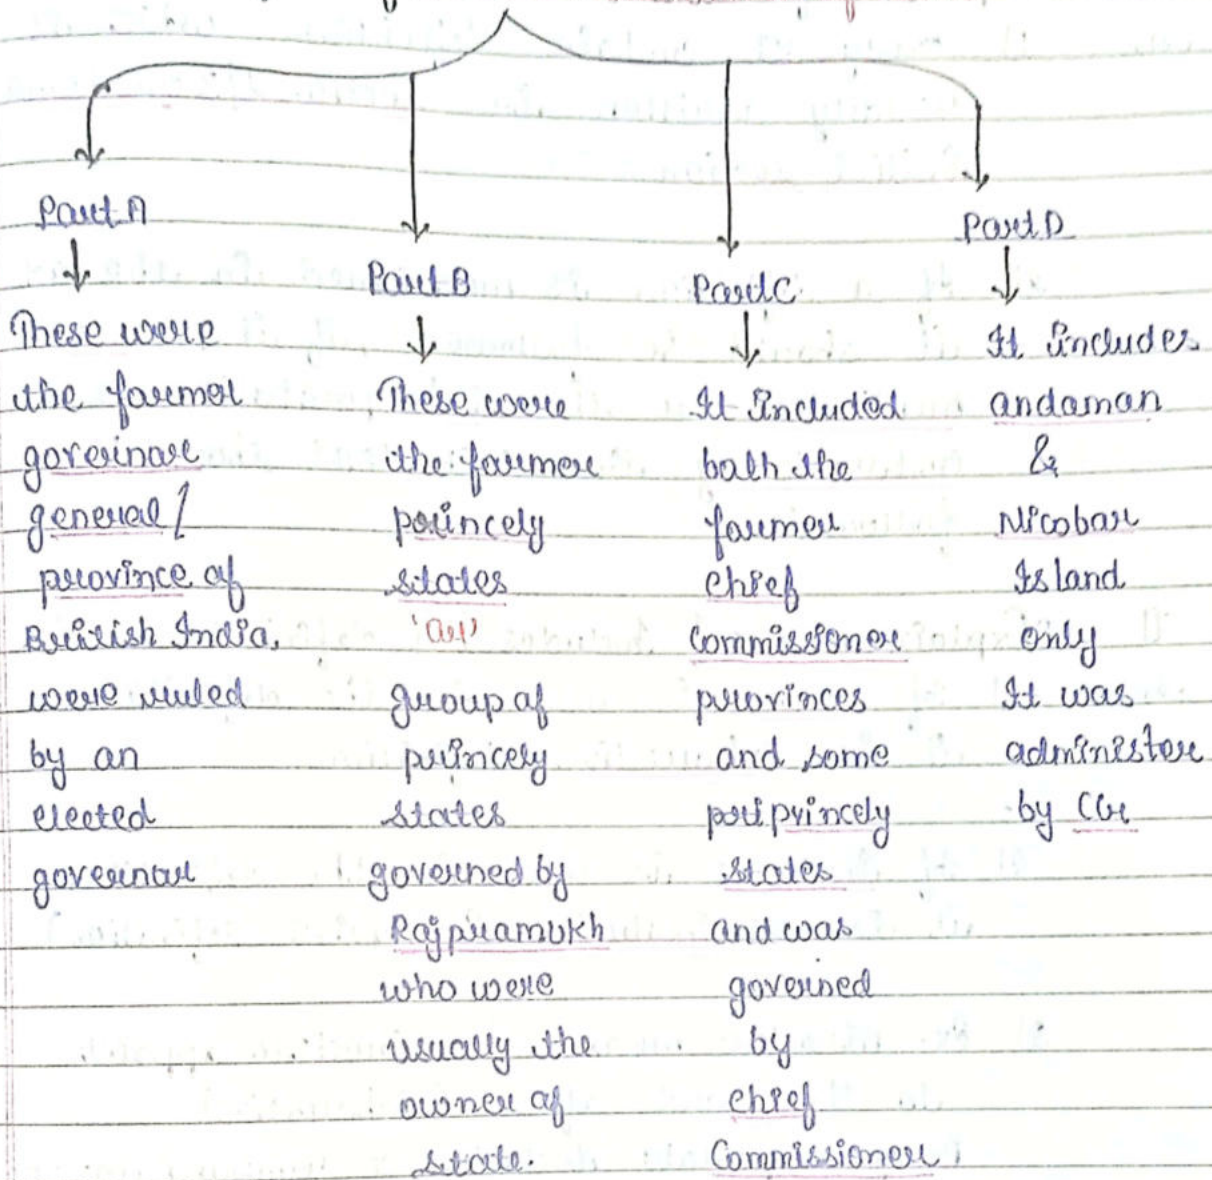 Part A
These were
the farmer
goverinor
general /
province of
British India,
were ruled
by an
elected
governor
Part B
These were
the farmer
princely
states
'Or'
group of
princely
states
governed by
Rajpramukh
who were
usually the
owner of
state.
Part C
It Included
both the
farmer
chief
commissioner
provinces
and some
princely
states
and was
governed
by
chief
Commissioner,
Part D
It includes
andaman
&
Nicobar
Island
only
It was
administer
by